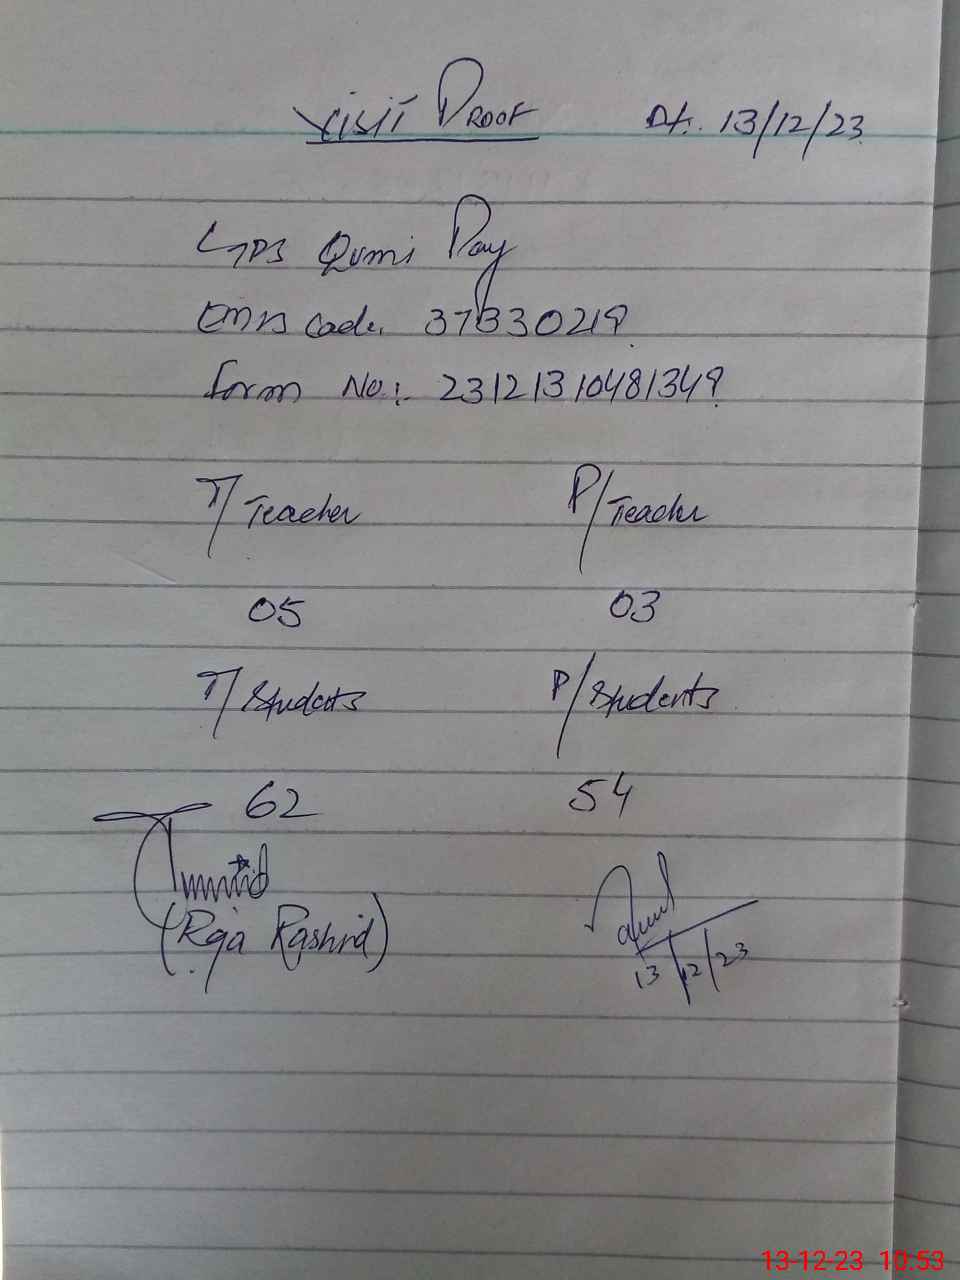 Visit Proof Dt. 13/12/23
GPS Qumi Pay
EMIS Code. 37330219
Form No:. 23121310481349
T/Teacher P/Teacher
05 03
T/Students P/Students
62 54
(Raja Rashid)
13/12/23
13-12-23 10:53